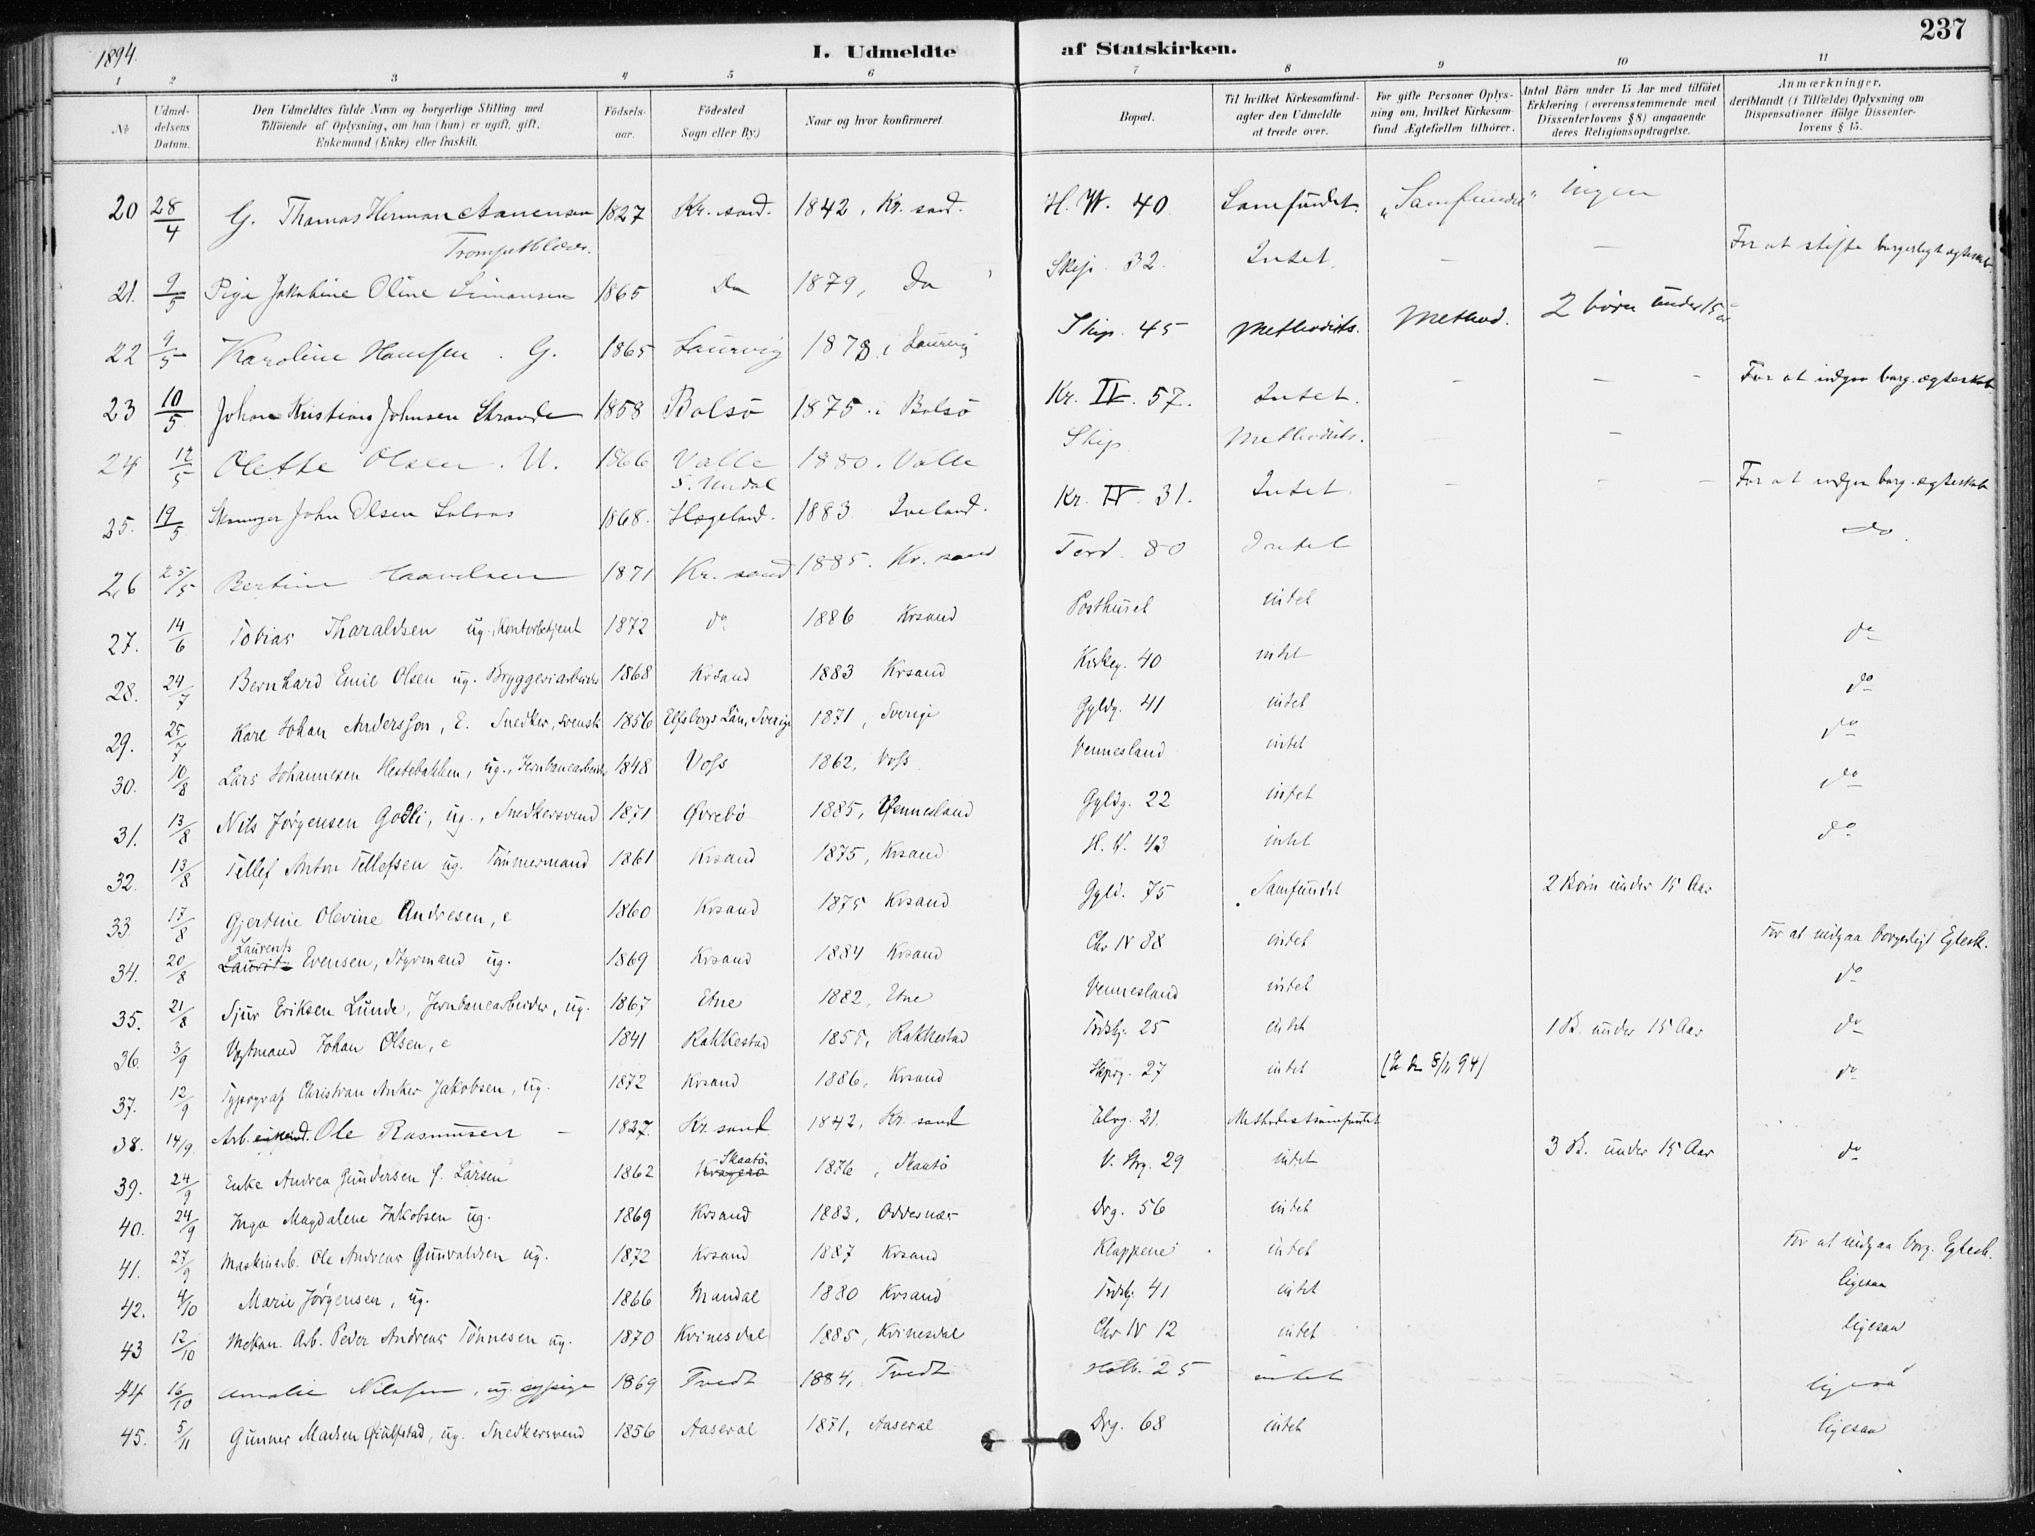 1894.
I. Udmeldte af Statskirken.
237
1 2 3 4 5 6 7 8 9 10 11
No
Udmeldelsens Datum.
Den Udmeldtes fulde Navn og borgerlige Stilling med Tilføiende af Oplysning, om han (hun) er ugift, gift, Enkemand (Enke) eller fraskilt.
Fødselsaar.
Fødested Sogn eller By)
Naar og hvor konfirmeret.
Bopæl.
Til hvilket Kirkesamfund- agter den Udmeldte at træde over.
For gifte Personer Oplysning om, hvilket Kirkesamfund Ægtefællen tilhører.
Antal Børn under 15 Aar med tilføiet Erklæring (overensstemmende med Dissenterlovens §8) angaaende deres Religionsopdragelse.
Anmærkninger, deriblandt (i Tilfælde) Oplysning om Dispensationer ifølge Dissenterlovens § 15.
20 28/4 G. Thomas Herman Aanensen 1827 Kr. sand. 1842, Kr. sand. H. W. 40 Samfundet. „Samfundet" Ingen
21. 9/5 Pige Jakobine Oline Simonsen 1865 Do 1879, Do Skip. 32. Intet. — — For at stifte borgerligt ægteskab
22 9/5 Karoline Hansen . G. 1865 Laurvig 1878 i Laurvig Skip. 45 Methodists. Method. 2 børn under 15 år
23 10/5 Johan Kristian Johnsen Strande 1858 Bolsö 1875 i Bolsö Kr. IV. 57. Intet. — — For at indgaa borg. ægteskab
24 12/5 Olette Olsen . U. 1866 Valle S. Undal 1880. Valle Skip Methodists. — —
25. 19/5 John Olsen 1868. Hægeland. 1883 Iveland. Kr. IV 31. Intet. — — For at indgaa borg. ægteskab
26 25/5 Bertine Haavelsen 1871 Kr. sand 1885. Kr. sand Tord. 80 Intet do.
27. 14/6 Tobias Tharaldsen ug., Kontorbetjent 1872 do 1886 Krsand Posthuset intet do
28. 24/7 Bernhard Emil Olsen ug. Bryggeriarbeider 1868 Krsand 1883 Krsand Kirkeg. 40 intet do
29. 25/7 Karl Johan Andersson, E. Snedker, svensk 1856 Elfsborgs Län, Sverige 1871, Sverige Gyldg. 41 intet do
30. 10/8 Lars Johannesen Hestebakken, ug., Jernbanearbeider 1848 Voss 1862, Voss Vennesland intet do
31. 13/8 Nils Jørgensen Godli, ug., Snedkersvend 1871 Øvrebö 1885, Vennesland Gyldg. 22 intet do
32. 13/8 Tellef Anton Tellefsen ug. Tömmermand 1861 Krsand 1875, Krsand H. V. 43 intet
33. 17/8 Gjertine Olevine Andresen, e 1860 Krsand 1875 Krsand Gyld. 75 Samfundet 2 Börn under 15 Aar
34. 20/8 Laurents Evensen, Styrmand ug. 1869 Krsand 1884 Krsand Chr IV 88 intet For at indgaa borgerligt Egtesk.
35. 21/8 Sjur Eriksen Lunde, Jernbanearbeider, ug. 1867 Etne 1882, Etne Vennesland intet do
36. 3/9 Vogtmand Johan Olsen, e 1841 Rakkestad 1857, Rakkestad Tordskj. 25 intet 1 B. under 15 Aar do
37. 12/9 Typograf Christian Anker Jakobsen, ug. 1872 Krsand 1886, Krsand Skprg. 27 intet do
38. 14/9 Arb. Ole Rasmusen — 1827. Kr. sand 1842, Kr. sand Elvg. 21. Methodistsamfundet
39. 24/9 Enke Andrea Gundersen f. Larsen 1862 Kragerø Skaatö 1876, Skaatö V. Strg. 29 intet 3 B. under 15 Aar do
40. 24/9 Inga Magdalene Jakobsen ug. 1869 Krsand 1883, Oddernes Drg. 56 intet
41. 27/9 Maskinarb. Ole Andreas Gunvaldsen ug. 1872 Krsand 1887 Krsand Klappene intet For at indgaa borg. Egtesk.
42. 4/10 Marie Jørgensen, ug. 1866 Mandal 1880 Krsand Tordskj. 41 intet ligesaa
43 12/10 Mekan. Arb. Peder Andreas Tönnesen ug. 1870 Kvinesdal 1885, Kvinesdal Chr IV 12 intet ligesaa
44 16/10 Amalie Nilssen, ug. sypige 1869 Tvedt 1884, Tvedt Holb. 25 intet ligeså
45. 5/11 Gunner Madsen ug. Snedkersvend 1856 Aaseral 1871, Aaseral Drg. 68 intet ligesaa